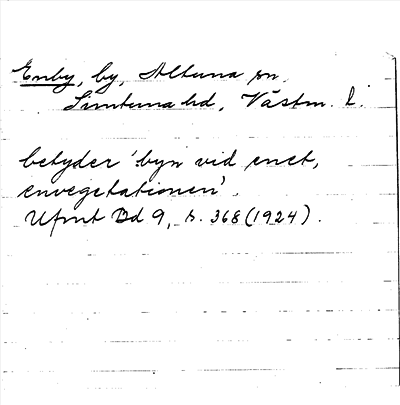 Enby, by, Altuna sn,
Simtuna hd, Västm. l.
betyder 'byn vid enet,
envegetationen'.
Ufmt Bd 9, s. 368 (1924).